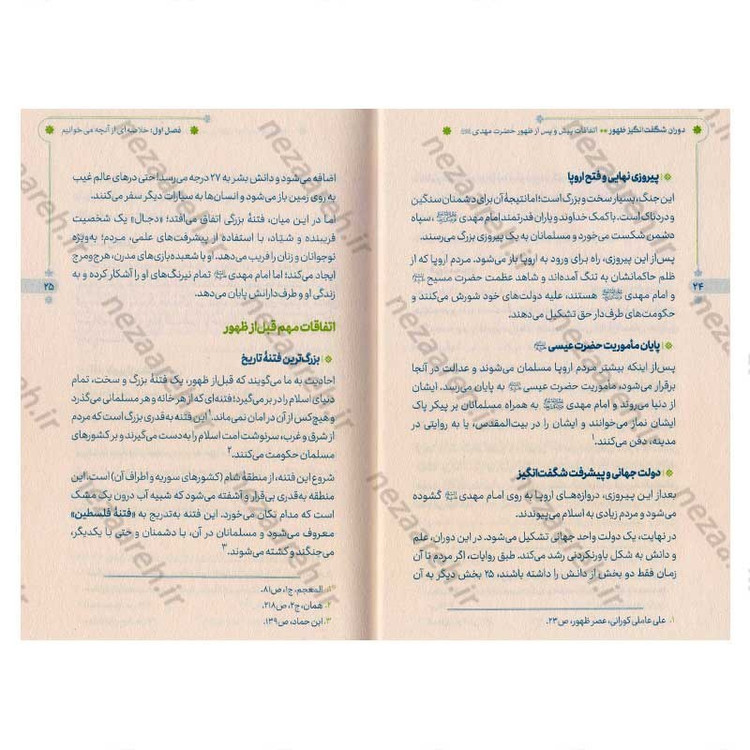 دوران شگفت‌انگیز ظهور •• اتفاقات پیش و پس از ظهور حضرت مهدی
۲۴
پیروزی نهایی و فتح اروپا
این جنگ، بسیار سخت و بزرگ است؛ اما نتیجهٔ آن برای دشمنان سنگین
و دردناک است. با کمک خداوند و یاران قدرتمند امام مهدی، سپاه
دشمن شکست می‌خورد و مسلمانان به یک پیروزی بزرگ می‌رسند.
پس از این پیروزی، راه برای ورود به اروپا باز می‌شود. مردم اروپا که از
ظلم حاکمانشان به تنگ آمده‌اند و شاهد عظمت حضرت مسیح
و امام مهدی هستند، علیه دولت‌های خود شورش می‌کنند و
حکومت‌های طرف‌دار حق تشکیل می‌دهند.
پایان مأموریت حضرت عیسی
پس از اینکه بیشتر مردم اروپا مسلمان می‌شوند و عدالت در آنجا
برقرار می‌شود، مأموریت حضرت عیسی به پایان می‌رسد. ایشان
از دنیا می‌روند و امام مهدی به همراه مسلمانان بر پیکر پاک
ایشان نماز می‌خوانند و ایشان را در بیت‌المقدس، یا به روایتی در
مدینه، دفن می‌کنند.۱
دولت جهانی و پیشرفت شگفت‌انگیز
بعد از این پیروزی، دروازه‌های اروپا به روی امام مهدی گشوده
می‌شود و مردم زیادی به اسلام می‌پیوندند.
در نهایت، یک دولت واحد جهانی تشکیل می‌شود. در این دوران، علم
و دانش به شکل باورنکردنی رشد می‌کند. طبق روایات، اگر مردم تا آن
زمان فقط دو بخش از دانش را داشته باشند، ۲۵ بخش دیگر به آن
۱. علی عاملی کورانی، عصر ظهور، ص۲۳.
فصل اول: خلاصه‌ای از آنچه می‌خوانیم
۲۵
اضافه می‌شود و دانش بشر به ۲۷ درجه می‌رسد! حتی درهای عالم غیب
به روی زمین باز می‌شود و انسان‌ها به سیارات دیگر سفر می‌کنند.
اما در این میان، فتنهٔ بزرگی اتفاق می‌افتد؛ «دجال» یک شخصیت
فریبنده و شیاد، با استفاده از پیشرفت‌های علمی، مردم؛ به‌ویژه
نوجوانان و زنان را فریب می‌دهد. او با شعبده‌بازی‌های مدرن، هرج‌ومرج
ایجاد می‌کند؛ اما امام مهدی تمام نیرنگ‌های او را آشکار کرده و به
زندگی او و طرف‌دارانش پایان می‌دهد.
اتفاقات مهم قبل از ظهور
بزرگ‌ترین فتنهٔ تاریخ
احادیث به ما می‌گویند که قبل از ظهور، یک فتنهٔ بزرگ و سخت، تمام
دنیای اسلام را در بر می‌گیرد؛ فتنه‌ای که از هر خانه و هر مسلمانی می‌گذرد
و هیچ‌کس از آن در امان نمی‌ماند.۱ این فتنه به‌قدری بزرگ است که مردم
از شرق و غرب، سرنوشت امت اسلام را به‌دست می‌گیرند و بر کشورهای
مسلمان حکومت می‌کنند.۲
شروع این فتنه، از منطقهٔ شام (کشورهای سوریه و اطراف آن) است. این
منطقه به‌قدری بی‌قرار و آشفته می‌شود که شبیه آب درون یک مشک
است که مدام تکان می‌خورد. این فتنه به‌تدریج به «فتنهٔ فلسطین»
معروف می‌شود و مسلمانان در آن، با دشمنان و حتی با یکدیگر،
می‌جنگند و کشته می‌شوند.۳
۱. المعجم، ج۱، ص۸۱.
۲. همان، ج۲، ص۲۱۸.
۳. ابن حماد، ص۱۳۹.
nezaareh.ir